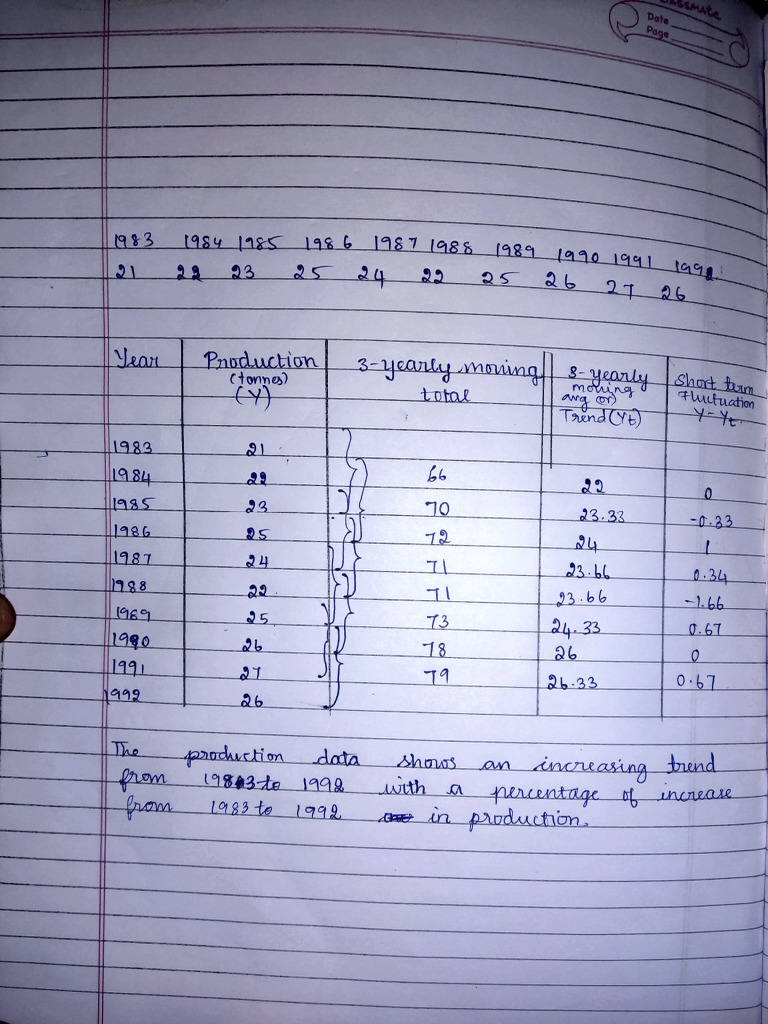 classmate
Date
Page
1983 1984 1985 1986 1987 1988 1989 1990 1991 1992
21 22 23 25 24 22 25 26 27 26
Year Production (tonnes) (Y) 3-yearly moving total 3-yearly moving avg (or) Trend (Yt) Short term Fluctuation Y-Yt
1983 21
1984 22 66 22 0
1985 23 70 23.33 -0.33
1986 25 72 24 1
1987 24 71 23.66 0.34
1988 22 71 23.66 -1.66
1989 25 73 24.33 0.67
1990 26 78 26 0
1991 27 79 26.33 0.67
1992 26
The production data shows an increasing trend
from 1983 to 1992 with a percentage of increase
from 1983 to 1992 in production.